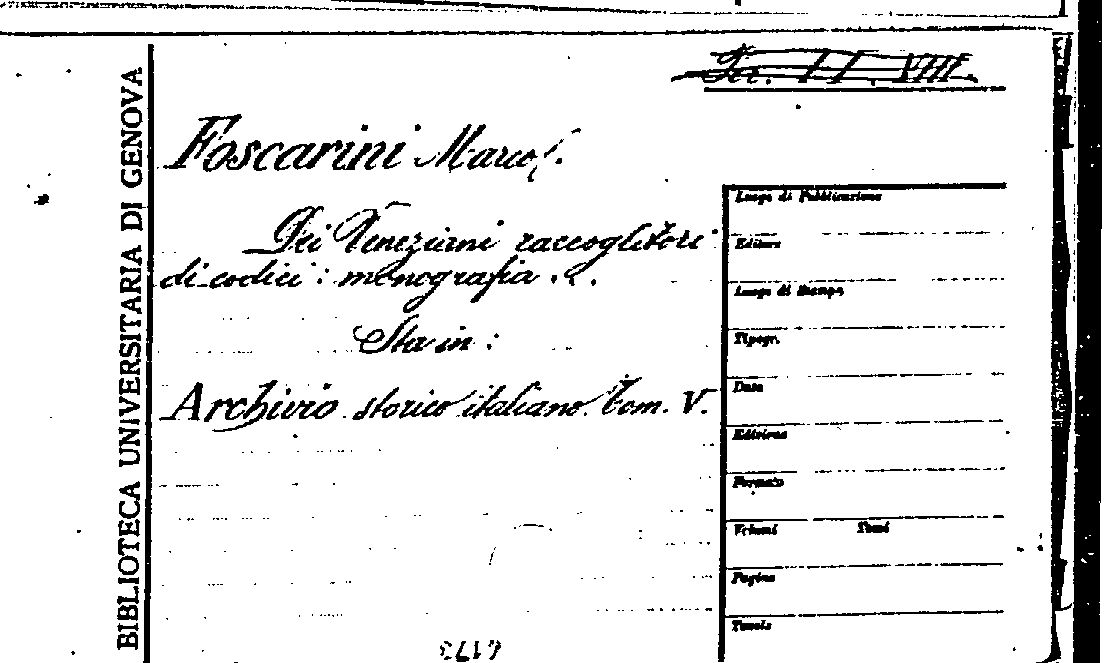 BIBLIOTECA UNIVERSITARIA DI GENOVA
Foscarini Marco.
Dei Veneziani raccoglitori
di codici: monografia...
Sta in:
Archivio storico italiano. tom. V.
Luogo di Pubblicazione
Editore
Luogo di Stampa
Tipogr.
Data
Edizione
Formato
Volumi Tomi
Pagine
Tavole